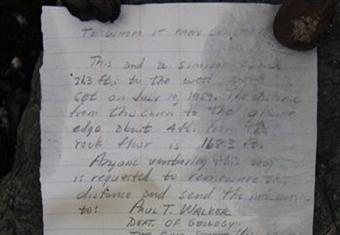 TO WHOM IT MAY CONCERN
This and a similar cairn
21.3 ft. to the west were
set on July 10, 1959. The distance
from this cairn to the glacier
edge about 4 ft. from the
rock floor is 168.3 ft.
Anyone venturing this way
is requested to remeasure this
distance and send the information
to: PAUL T. WALKER
DEPT. OF GEOLOGY
THE OHIO STATE